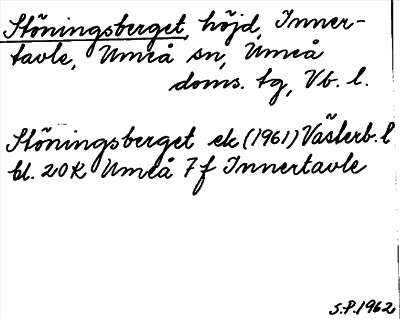 Stöningsberget, höjd, Inner-
tavle, Umeå sn, Umeå
doms. tg, Vb. l.
Stöningsberget ek (1961) Västerb. l
bl. 20K Umeå 7f Innertavle
S.P. 1962